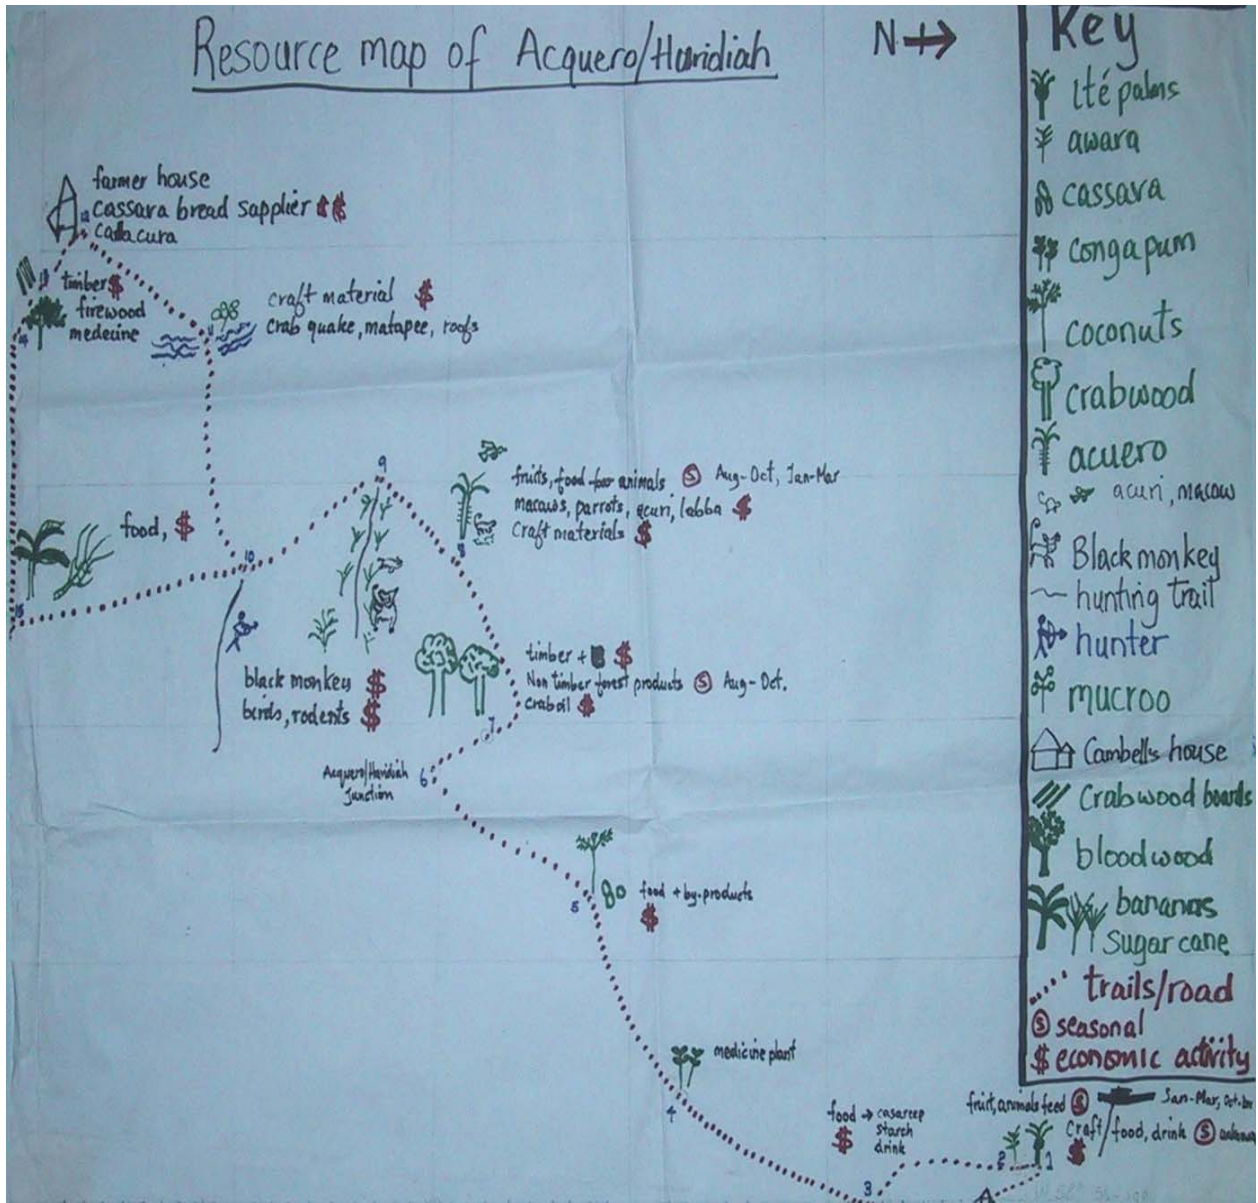 Resource map of Acquero/Haridiah
N
farmer house
12
cassara bread sapplier $ $
13
timber $
firewood
medecine
14
craft material $
crab quake, matapee, roofs
food, $
15
10
9
8
fruits, food for animals Ⓢ Aug-Oct, Jan-Mar
macaws, parrots, acuri, labba $
Craft materials $
black monkey $
birds, rodents $
timber + $
Non timber forest products Ⓢ Aug-Oct.
craboil $
7
Acquero/Haridiah
Junction
6
5
food + by-products
$
medicine plant
4
food → casareep
$ starch
drink
3
fruit, animals feed Ⓢ Jan-Mar,
Craft/food, drink Ⓢ
$
2
1
Key
Ité palms
awara
cassava
congapum
coconuts
crabwood
acuero
acuri, macaw
Black monkey
hunting trail
hunter
mucroo
Cambell's house
Crabwood boards
bloodwood
bananas
Sugar cane
trails/road
Ⓢ seasonal
$ economic activity